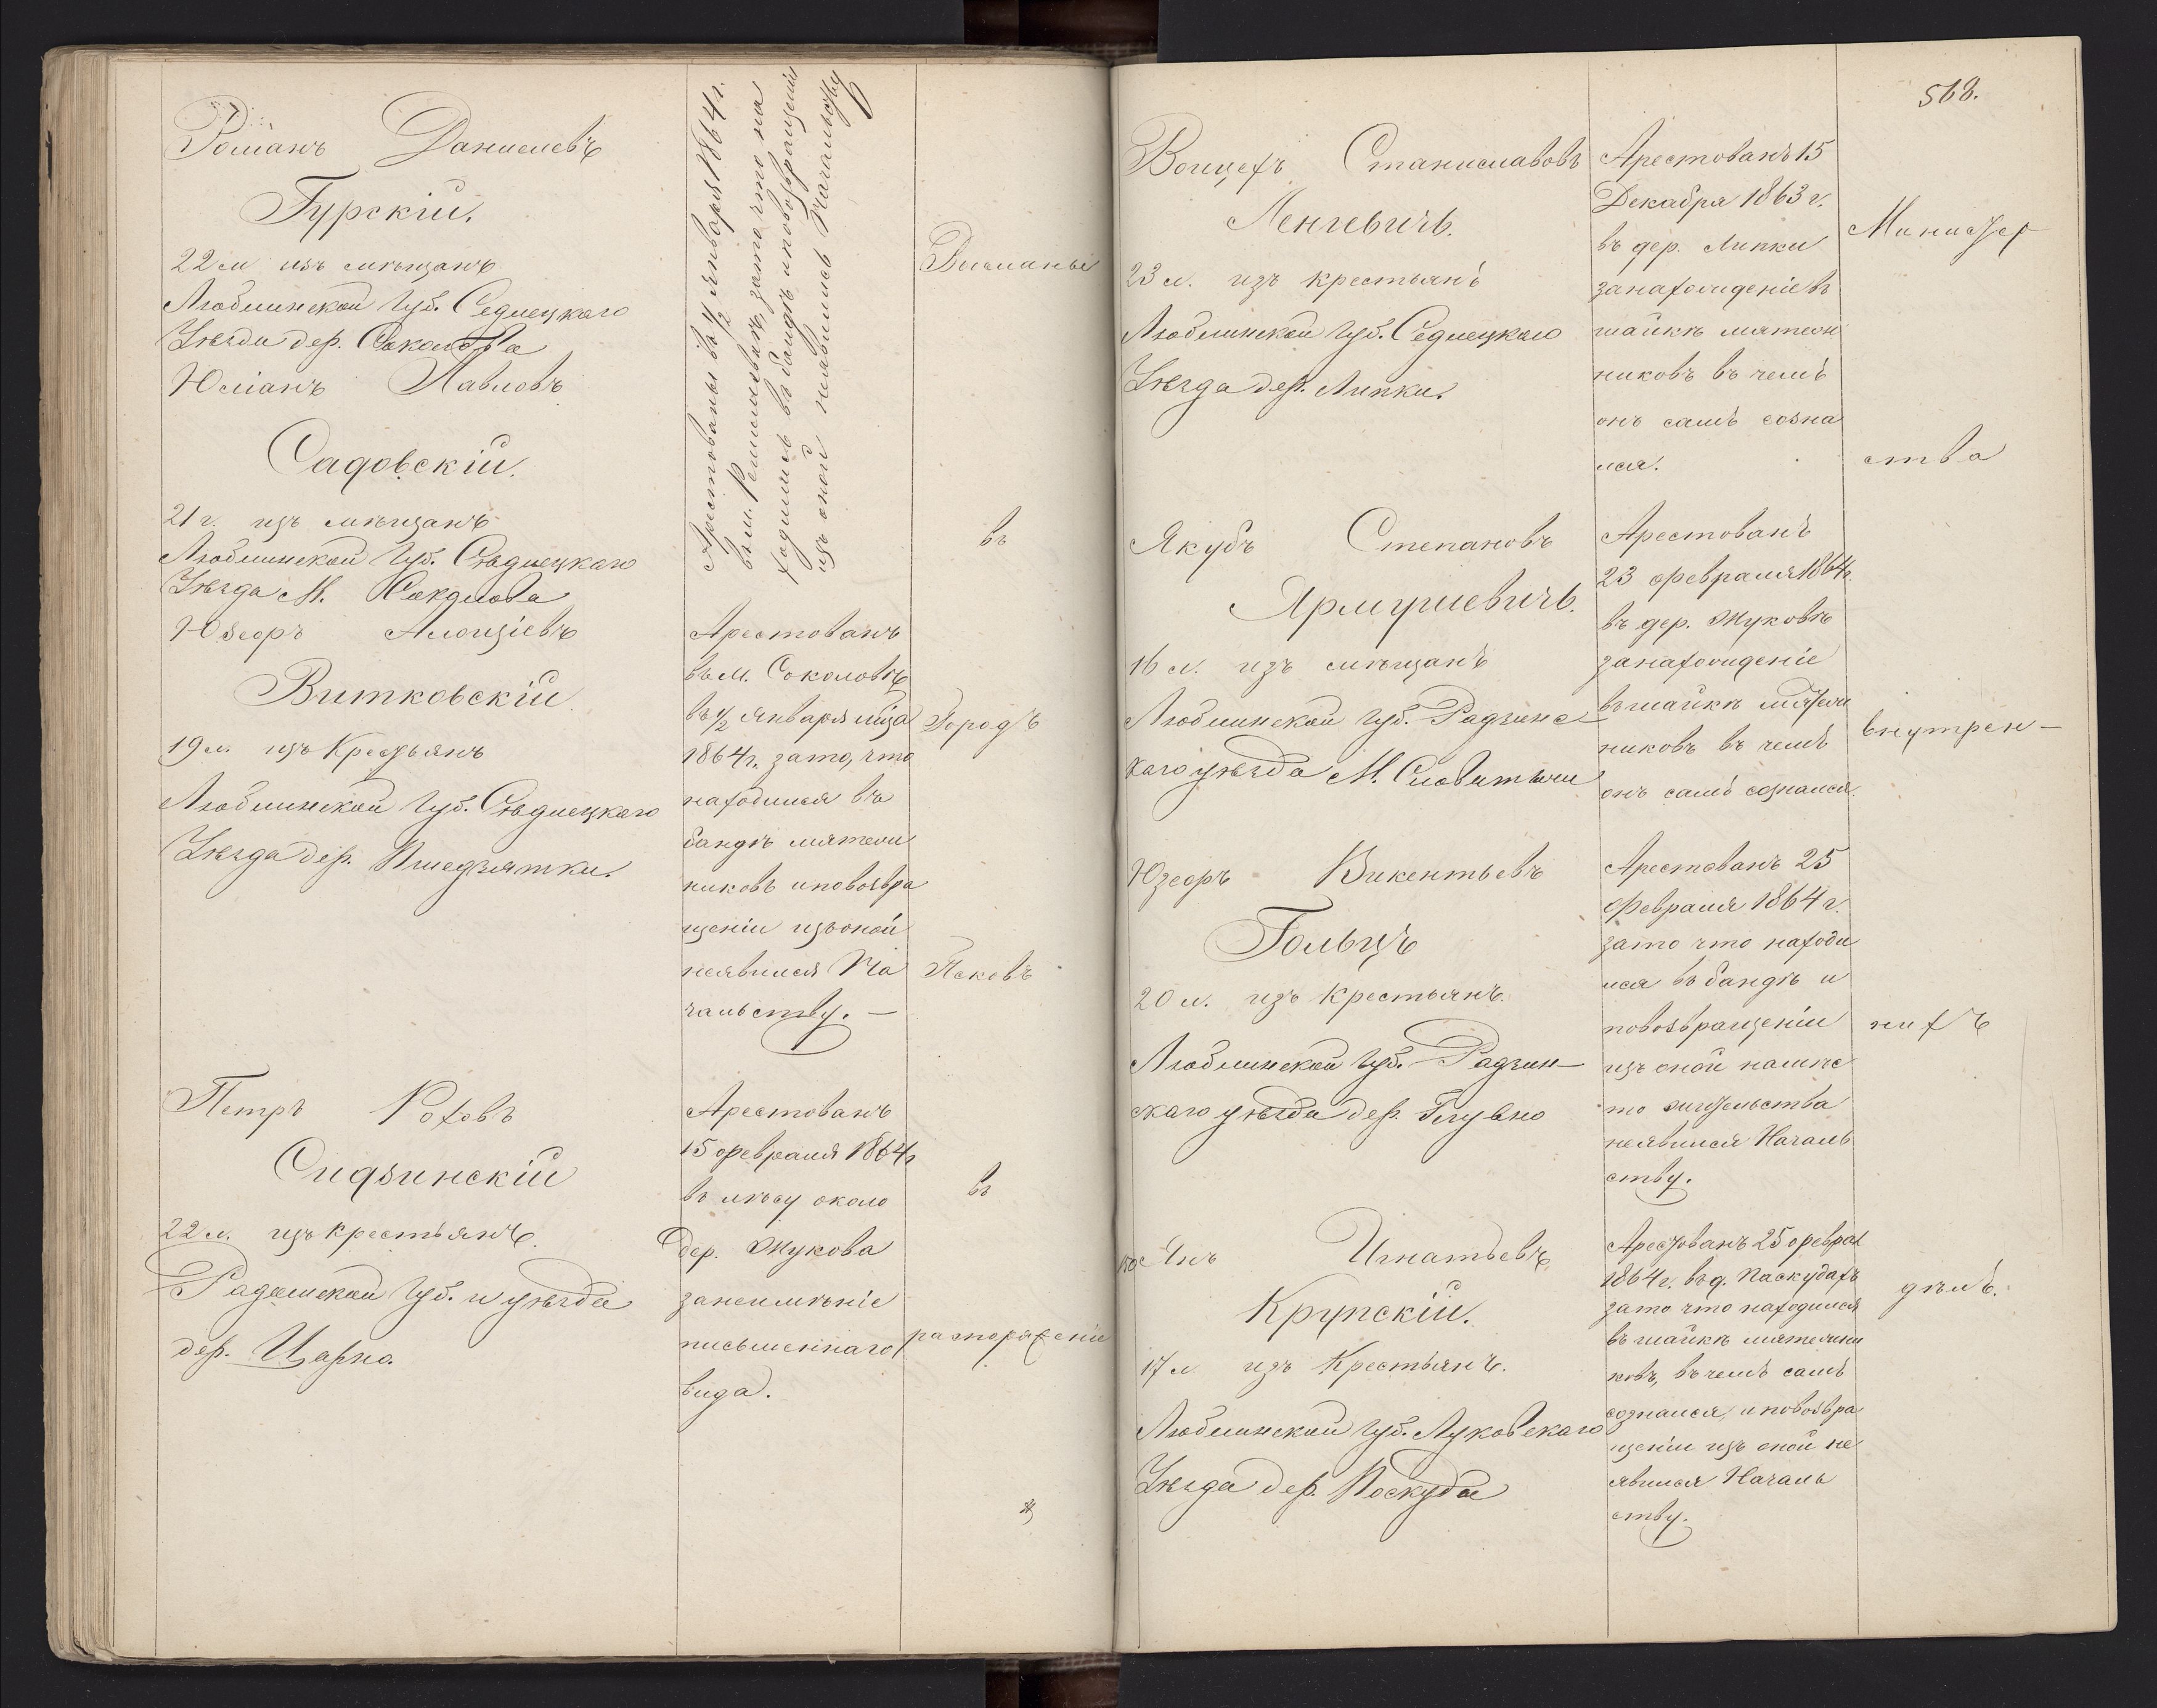 Романъ Даниелевъ
Гурскій.
22 л изъ мѣщанъ
Люблинской Губ. Седлецкаго
Уѣзда дер. Соколова
Юліанъ Павловъ
Садовскій.
21 г. изъ мѣщанъ
Люблинской Губ. Сѣдлецкаго
Уѣзда М. Соколова
Юзефъ Алоизіевъ
Витковскій
19 л. изъ Крестьянъ
Люблинской Губ. Сѣдлецкаго
Уѣзда дер.
Петръ Роховъ
Сидзинскій
22 л. изъ крестьянъ.
Радомской Губ. и уѣзда
дер. Царно.
Арестованы въ 1/2 Января 1864 г.
въ м. зато, что на
ходились въ бандѣ и повозвращеніи
изъ оной неявились Начальству
Арестованъ
въ М. Соколовѣ
въ 1/2 Января м-ца
1864 г. зато, что
находился въ
бандѣ мятеж
никовъ и повозвра
щеніи изъ оной
неявился На
чальству. —
Арестованъ
15 февраля 1864 г
въ лѣсу около
дер. Жукова
занеимѣніе
письменнаго
вида.
Высланы
въ
Городъ
Псковъ
въ
распоряженіе
568.
Войцехъ Станиславовъ
Ленгевичъ.
23 л. изъ крестьянъ
Люблинской Губ. Седлецкаго
Уѣзда дер. Липки.
Якубъ Степановъ
Ярмушевичъ.
16 л. изъ мѣщанъ
Люблинской Губ. Радзинс
каго уѣзда М. Словатычи
Юзефъ Викентьевъ
Гольцъ
20 л. изъ Крестьянъ.
Люблинской Губ. Радзин—
скаго уѣзда дер. Глувно
Янъ Игнатьевъ
Крупскій.
17 л. изъ Крестьянъ.
Люблинской Губ. Луковскаго
Уѣзда дер. Поскуда
Арестованъ 15
Декабря 1863 г.
въ дер. Липки
занахожденіе въ
шайкѣ мятеж
никовъ въ чемъ
онъ самъ созна
лся.
Арестованъ
23 февраля 1864 г.
въ дер. Жуковѣ
занахожденіе
въ шайкѣ мятеж
никовъ въ чемъ
онъ самъ сознался.
Арестованъ 25
Февраля 1864 г.
зато что находи
лся въ бандѣ и
повозвращеніи
изъ оной намѣс
то жительства
неявился Началь
ству.
Арестованъ 25 феврал
1864 г. въ д. Паскудахъ
зато что находился
въ шайкѣ мятежни
ковъ, въ чемъ самъ
сознался, и повозвра
щеніи изъ оной не
явился Началь
ству.
Министер
ства
внутрен—
нихъ
дѣлъ.